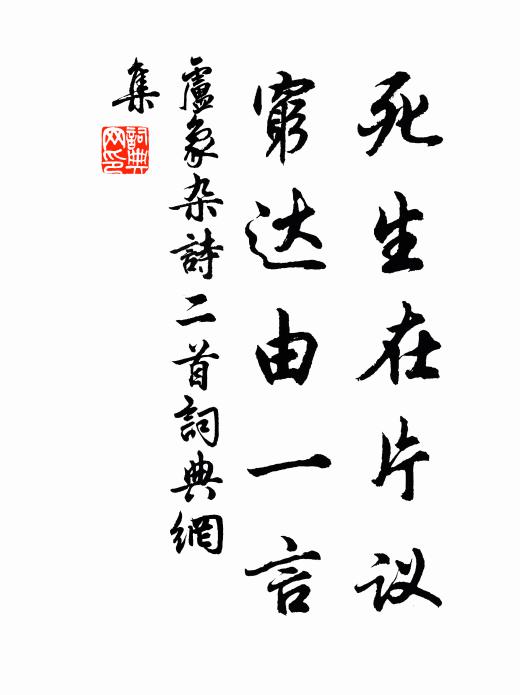 死生在片议
穷达由一言
盧象杂詩二首詞典網
集
詞典
网印